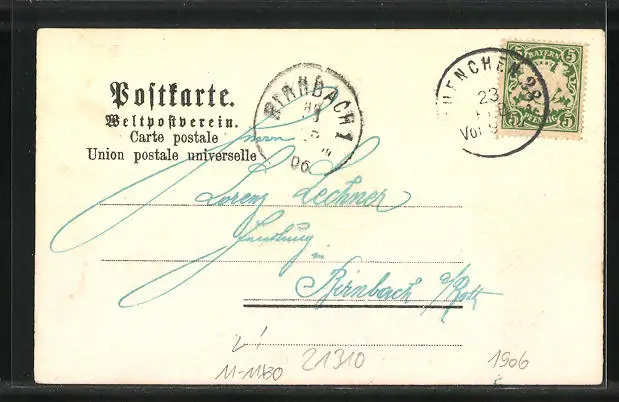 Postkarte.
Weltpostverein.
Carte postale
Union postale universelle
BIRNBACH 1
06
MUENCHEN
23
Vor
5 BAYERN 5
5 PFENNIG 5
Herrn
Lorenz Lechner
Handlung
in
Birnbach a/Rott
21310
1906